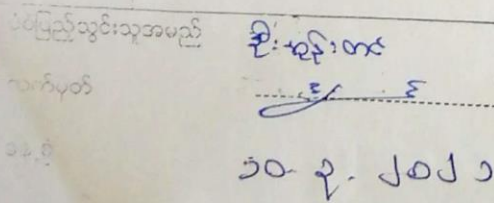 ပုံစံဖြည့်သွင်းသူအမည် စိုးထွန်းတင်
လက်မှတ်
နေ့စွဲ ၁၀-၃-၂၀၂၁